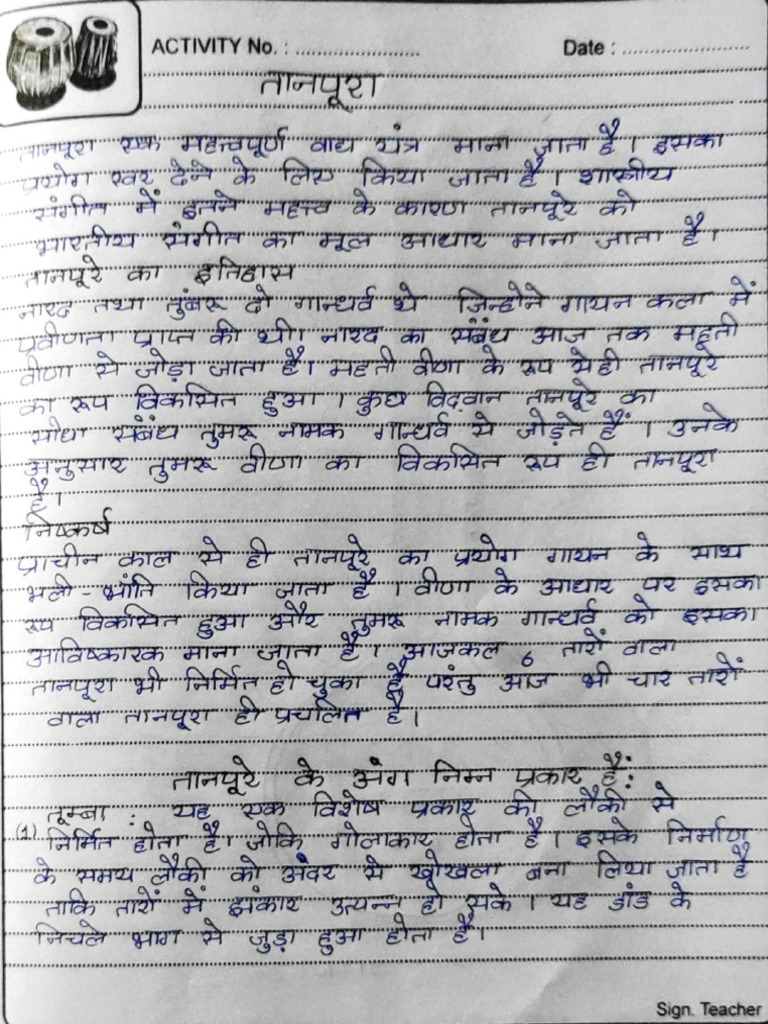 ACTIVITY No. : ........................ Date : ........................
तानपूरा
तानपूरा एक महत्त्वपूर्ण वाद्य यंत्र माना जाता है। इसका
प्रयोग स्वर देने के लिए किया जाता है। शास्त्रीय
संगीत में इतने महत्त्व के कारण तानपूरे को
भारतीय संगीत का मूल आधार माना जाता है।
तानपूरे का इतिहास
नारद तथा तुंबरू दो गान्धर्व थे जिन्होने गायन कला में
प्रवीणता प्राप्त की थी। नारद का संबंध आज तक महती
वीणा से जोड़ा जाता है। महती वीणा के रूप सेही तानपूरे
का रूप विकसित हुआ । कुछ विद्वान तानपूरे का
सीधा संबंध तुमरू नामक गान्धर्व से जोड़ते हैं । उनके
अनुसार तुमरू वीणा का विकसित रूप ही तानपूरा
है।
निष्कर्ष
प्राचीन काल से ही तानपूरे का प्रयोग गायन के साथ
भली-भांति किया जाता है । वीणा के आधार पर इसका
रूप विकसित हुआ और तुमरू नामक गान्धर्व को इसका
आविष्कारक माना जाता है। आजकल 6 तारों वाला
तानपूरा भी निर्मित हो चुका है परंतु आज भी चार तारों
वाला तानपूरा ही प्रचलित है।
तानपूरे के अंग निम्न प्रकार हैं:
तूम्बा : यह एक विशेष प्रकार की लौकी से
(1) निर्मित होता है। जोकि गोलाकार होता है । इसके निर्माण
के समय लौकी को अंदर से खोखला बना लिया जाता है
ताकि तारों में झंकार उत्पन्न हो सके । यह डांड के
निचले भाग से जुड़ा हुआ होता है।
Sign. Teacher